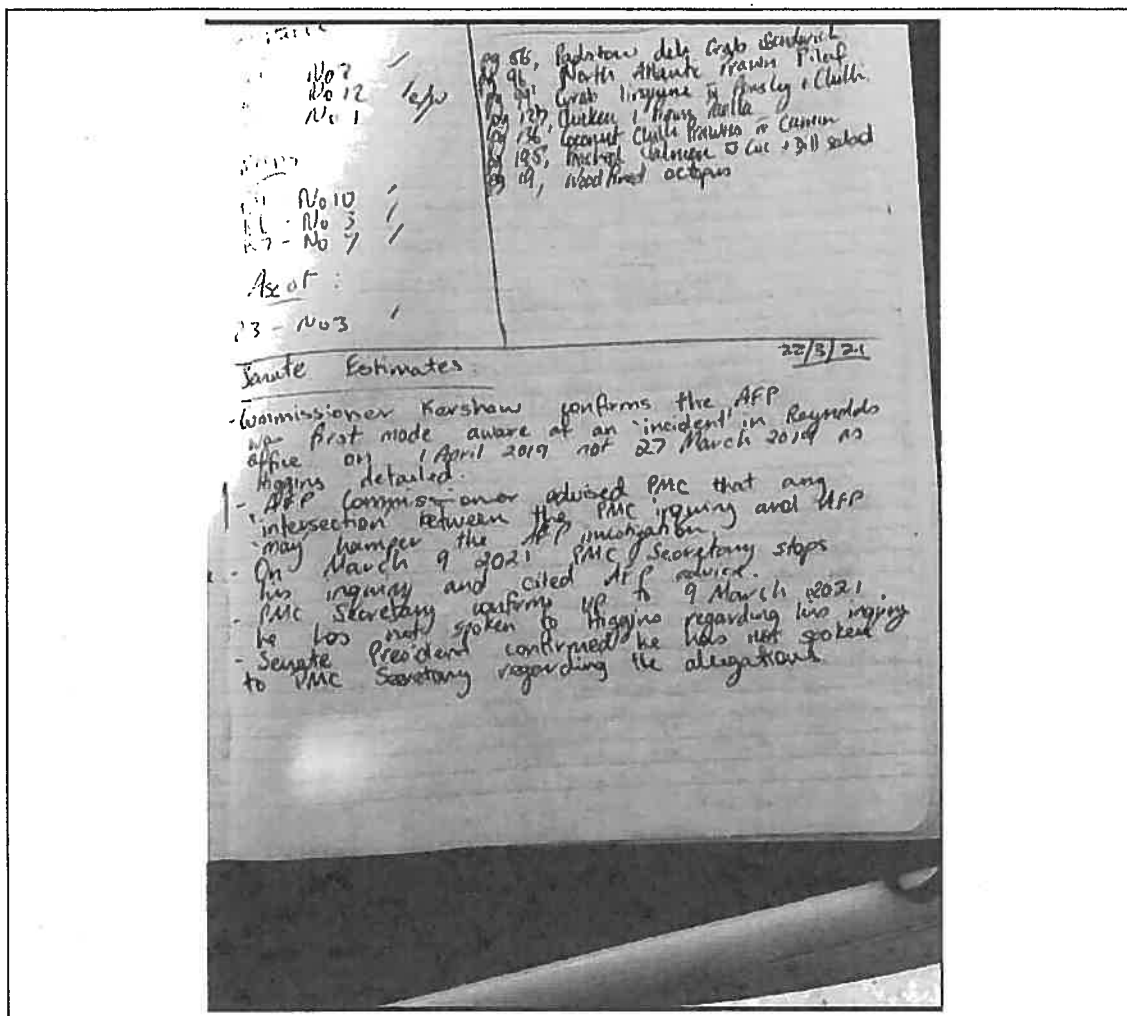 No 7
No 12 1e/w
No 1
No 10
No 3
R7 - No 7
Ascot :
R3 - No 3
pg 56, Padstow deli Crab Sandwich
pg 96, North Atlantic Prawn Pilaf
Crab linguine w Parsley + Chilli
pg 127, Chicken + Prawn Paella
pg 136, Coconut Chilli Prawns w Cumin
pg 195, Salmon w Cuc + Dill salad
pg 19, Wood fired octopus
Senate Estimates
22/3/21
- Commissioner Kershaw confirms the AFP
was first made aware of an 'incident' in Reynolds
office on 1 April 2019 not 27 March 2019 as
Higgins detailed.
- AFP Commissioner advised PMC that any
intersection between the PMC inquiry and AFP
may hamper the AFP investigation
- On March 9 2021 PMC Secretary stops
his inquiry and cited AFP advice.
- PMC Secretary confirms up to 9 March 2021
he has not spoken to Higgins regarding his inquiry
- Senate President confirmed he has not spoken
to PMC Secretary regarding the allegations